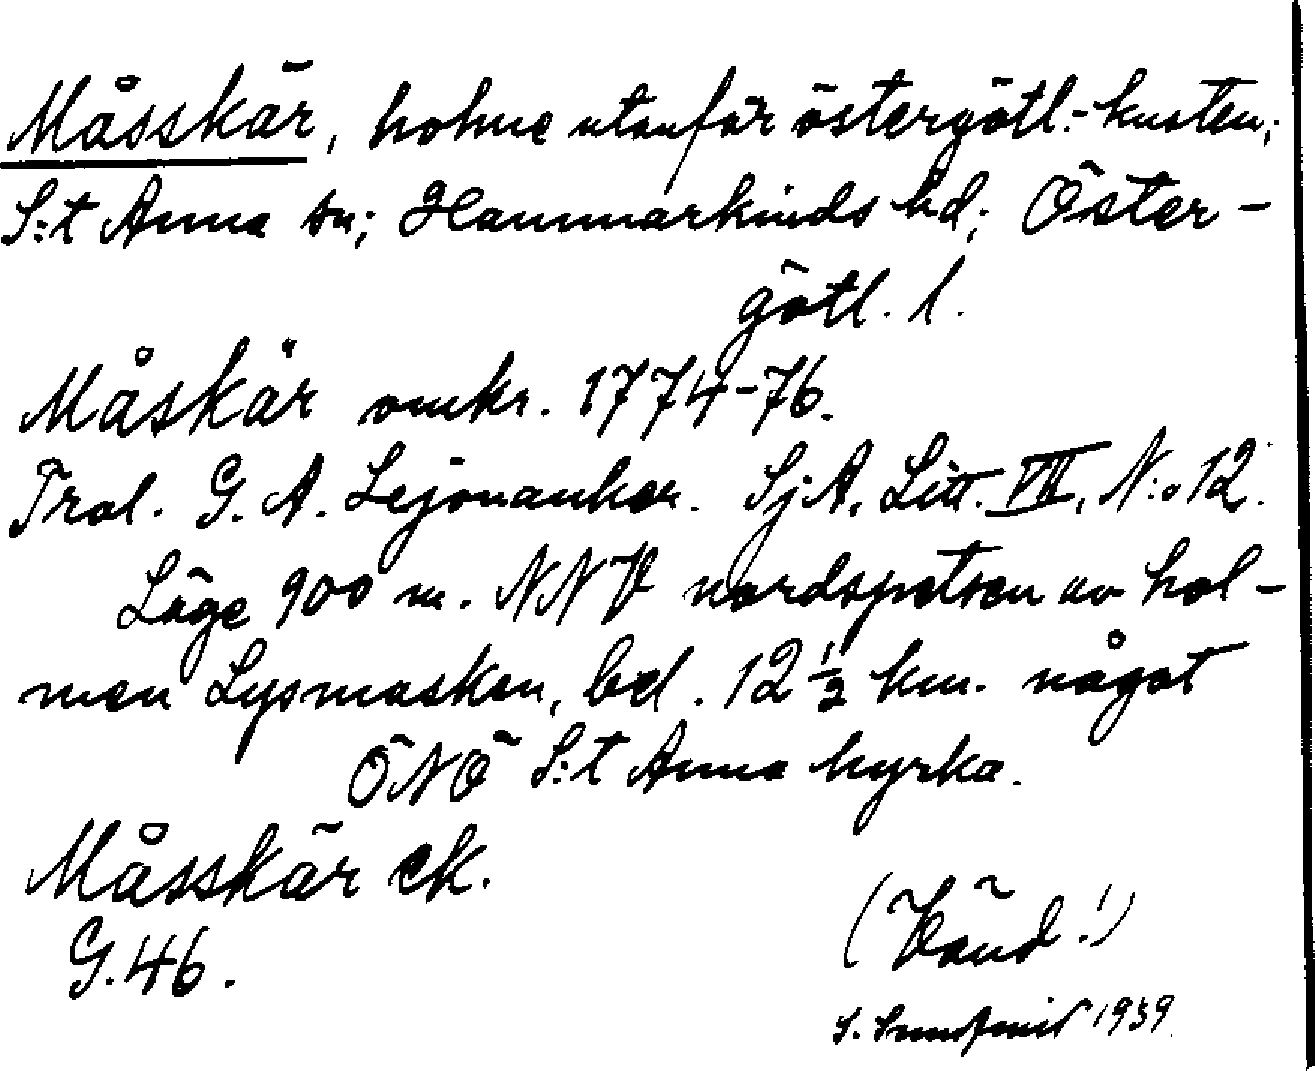 Måsskär, holme utanför östergötl.-kusten;
S:t Anna sn; Hammarkinds hd; Öster-
götl. l.
Måskär omkr. 1774-76.
Trol. G. A. Lejonanker. Sj.A. Litt. VII, N:o 12.
Läge 900 m. NNV nordspetsen av hol-
men Lysmasken, bel. 12 1/2 km. något
ÖNÖ S:t Anna kyrka.
Måsskär ek.
G. 46.
(Vänd!)
S. 1939